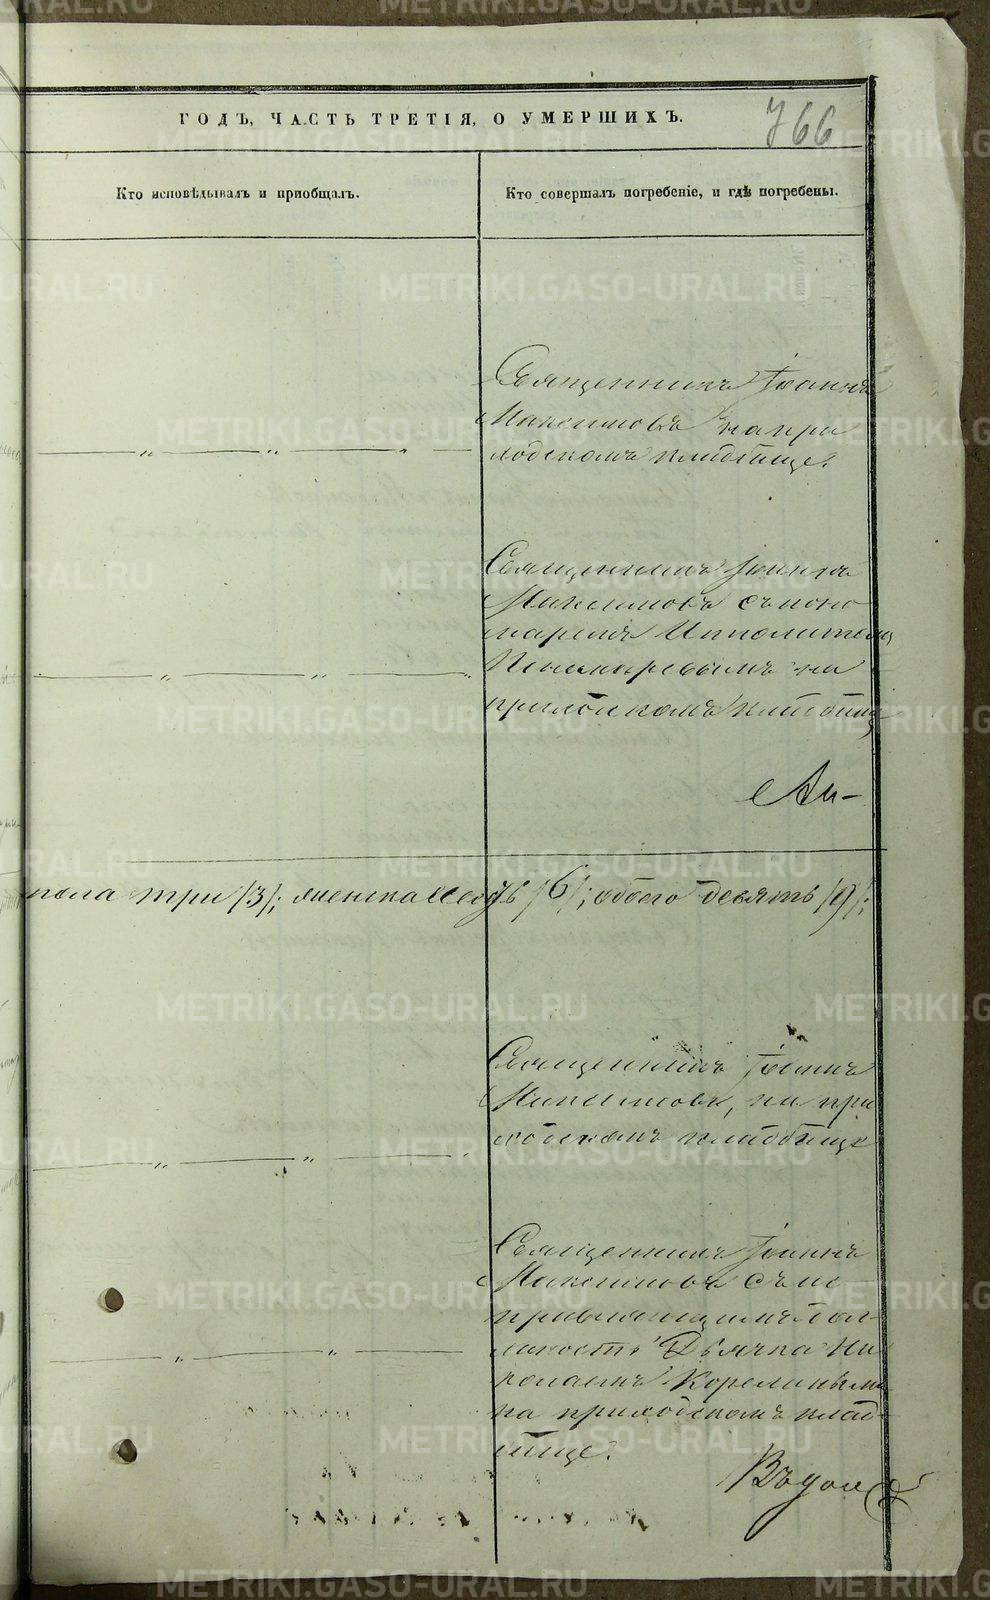 ГОДЪ, ЧАСТЬ ТРЕТІЯ, О УМЕРШИХЪ.
766
Кто исповѣдывалъ и пріобщалъ.
Кто совершалъ погребеніе, и гдѣ погребены.
Священникъ Іоаннъ
Максимовъ на при
ходскомъ кладбище.
Священникъ Іоаннъ
Максимовъ съ поно
маремъ Ипполитомъ
на
приходскомъ кладбище
пола три /3/; женска /6/; обоего девять /9/;
Священникъ Іоаннъ
Максимовъ, на при
ходскомъ кладбище
Священникъ Іоаннъ
Максимовъ съ ис
правляющимъ дол-
жность Дьячка Ни
колаемъ Кореминымъ
на приходскомъ клад-
бище.
METRIKI.GASO-URAL.RU